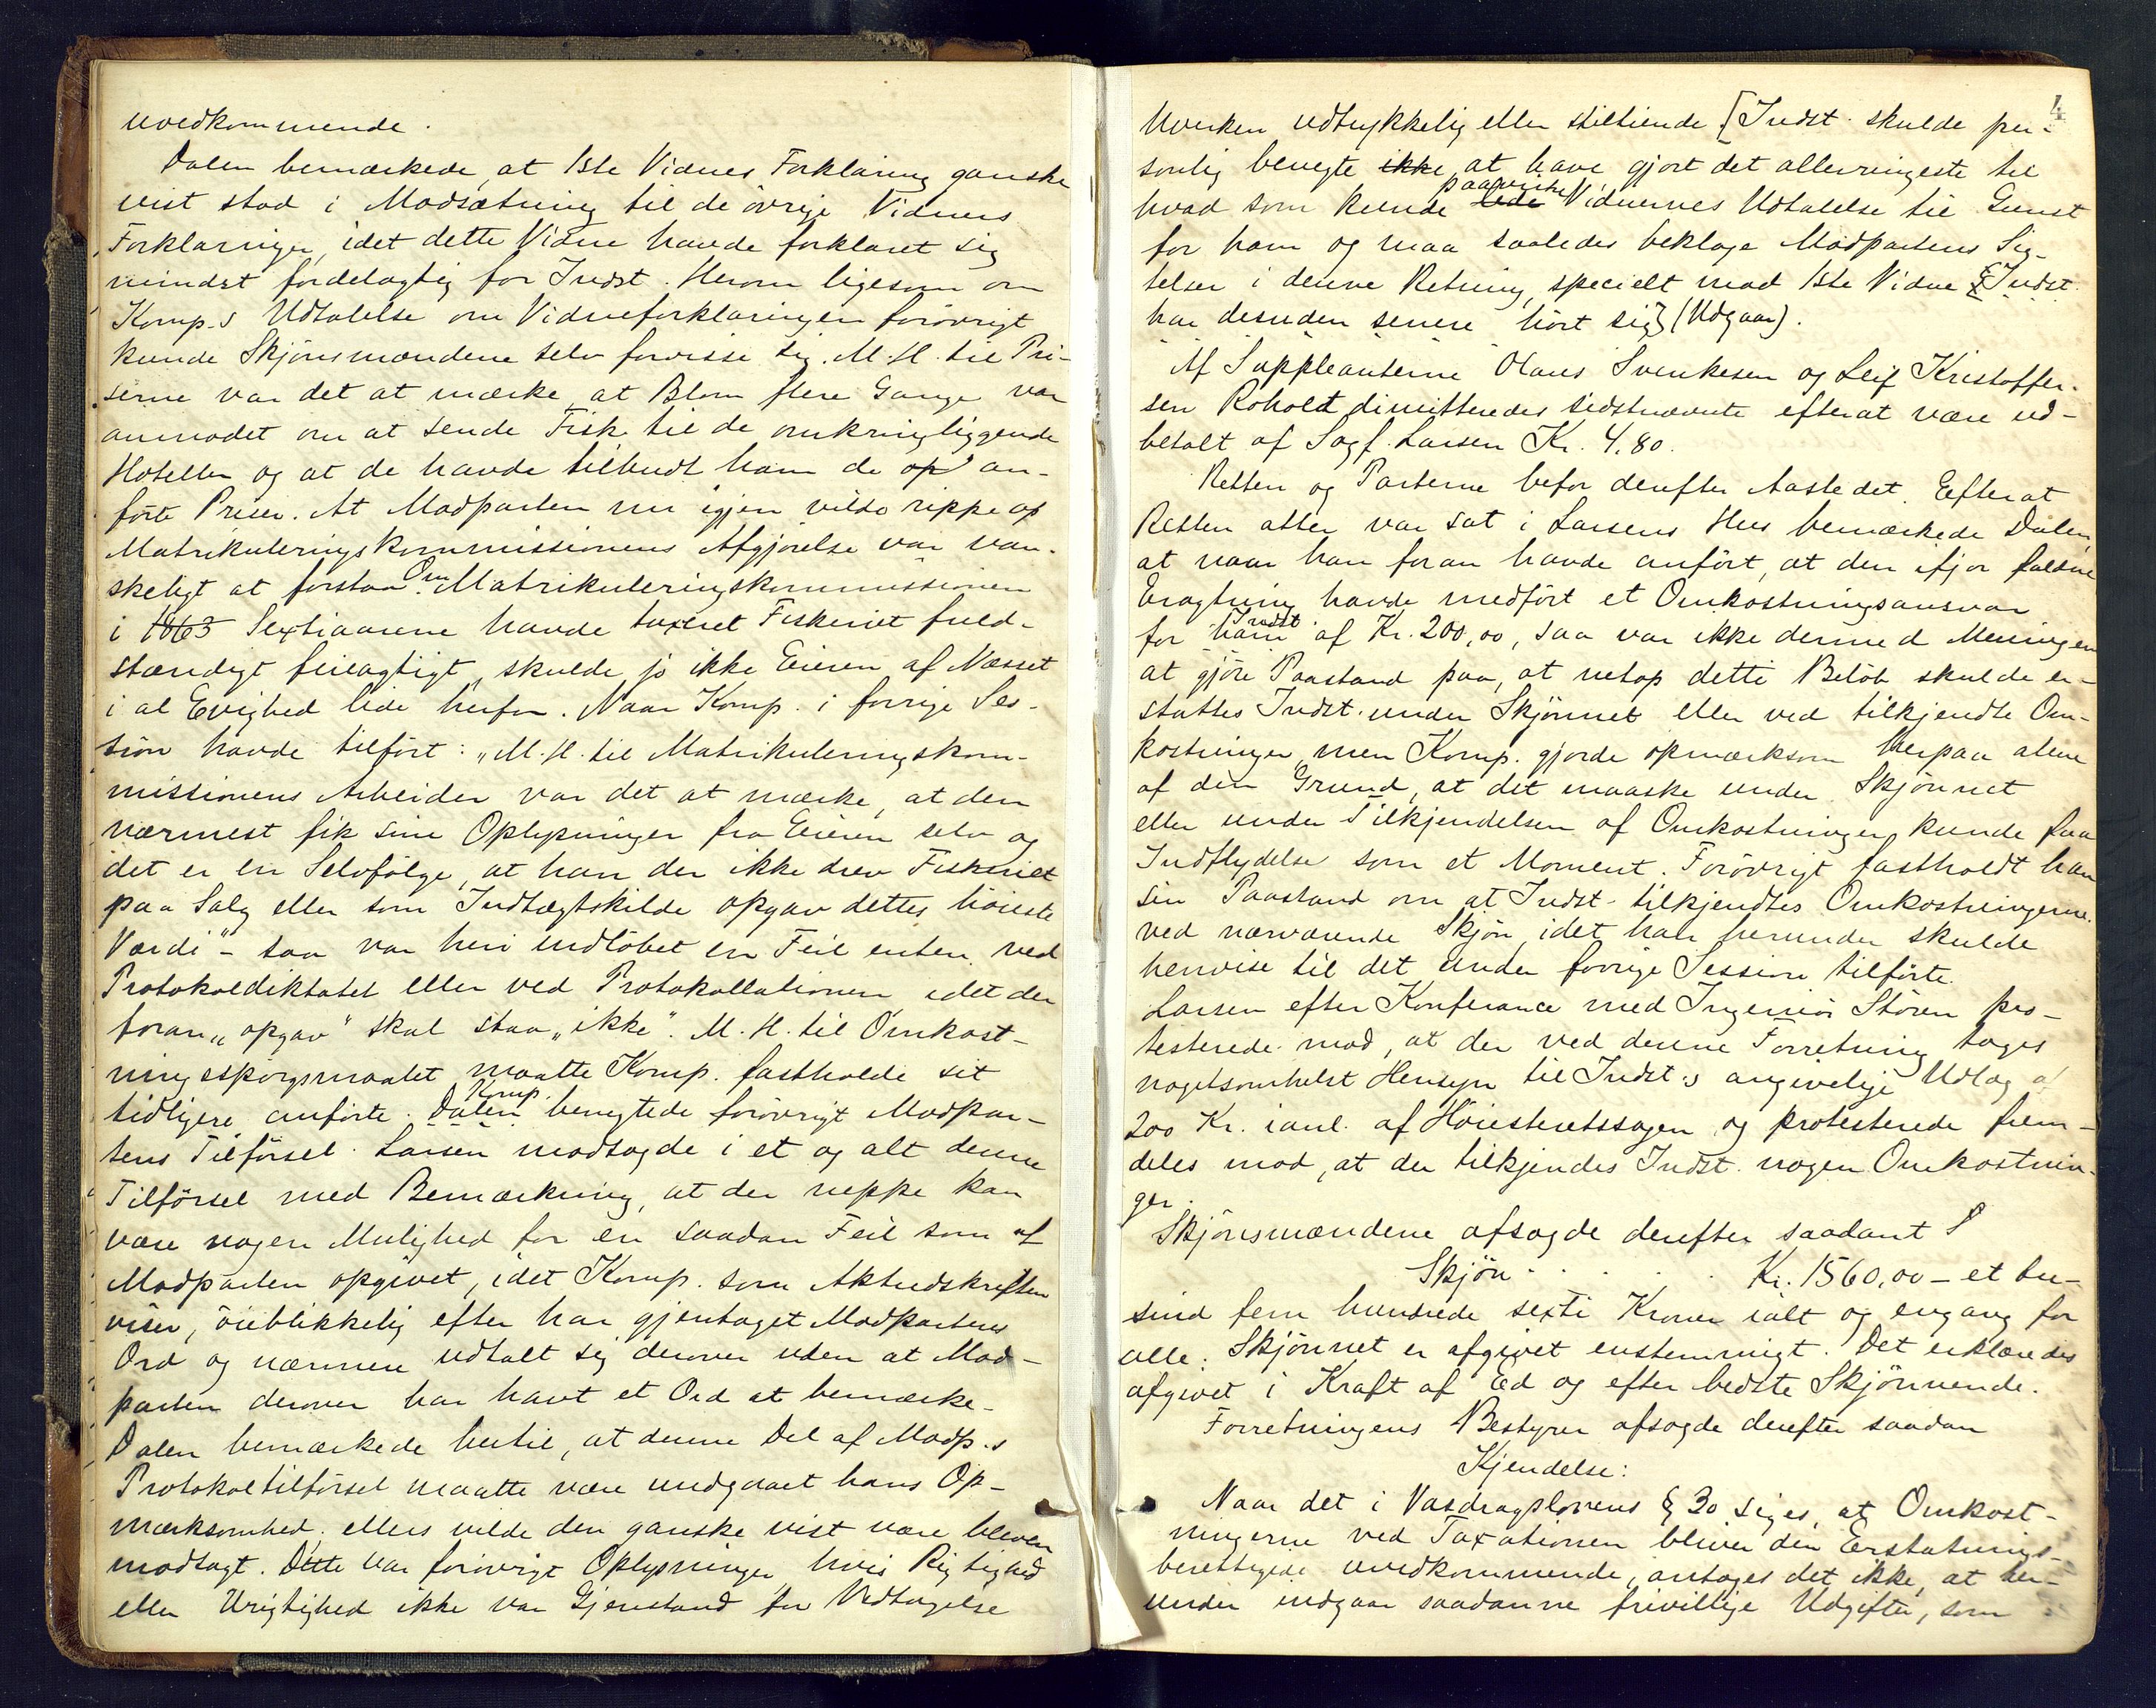 uvedkommende.
Dalen bemærkede, at 1ste Vidnes Forklaring ganske
vist stod i Modsætning til de övrige Vidners
Forklaringer, idet dette Vidne havde forklaret sig
mindst fordelagtig for Indst. Herom ligesom om
Komp.s Udtalelse om Vidneforklaringen forövrigt
kunde Skjönsmændene selv forvisse sig. M. H. til Pri-
serne var det at mærke, at Blom flere Gange var
anmodet om at sende Fisk til de omkringliggende
Hoteller og at de havde tilbudt ham de op an-
förte Priser. At Modparten nu igjen vilde rippe op
Matrikuleringskommissionens Afgjörelse var van-
skeligt at forstaa. Om Matrikuleringskommissionen
i 1863 Sextiaarene havde taxeret Fiskeriet fuld-
stændigt feilagtigt, skulde jo ikke Eieren af Næsset
i al Evighed lide herfor. Naar Komp. i forrige Ses-
sion havde tilfört: „M. H. til Matrikuleringskom-
missionens Arbeider var det at mærke, at den
nærmest fik sine Oplysninger fra Eieren selv og
det er en Selvfölge, at han der ikke drev Fiskeriet
paa Salg eller som Indtægtskilde opgav dettes höieste
Værdi" – saa var heri indlöbet en Feil enten ved
Protokoldiktatet eller ved Protokollationen idet der
foran „opgav" skal staa „ikke". M. H. til Omkost-
ningsspörgsmaalet maatte Komp. fastholde sit
tidligere anförte. Dalen Komp. benegtede forövrigt Modpar-
tens Tilförsel. Larsen modsagde i et og alt denne
Tilförsel med Bemærkning, at der neppe kan
være nogen Mulighed for en saadan Feil som af
Modparten opgivet, idet Komp. som Aktudskriften
viser, öieblikkelig efter har gjentaget Modpartens
Ord og nærmere udtalt sig derover uden at Mod-
parten derover har havt et Ord at bemærke.
Dalen bemærkede hertil, at denne Del af Modp.s
Protokoltilförsel maatte være undgaaet hans Op-
mærksomhed. ellers vilde den ganske vist være bleven
modsagt. Dette var forövrigt Oplysninger, hvis Rigtighed
eller Urigtighed ikke var Gjenstand for Vedtagelse
4
hverken udtrykkelig eller stiltiende [Indst. skulde per-
sonlig benegte ikke at have gjort det allerringeste til
hvad som kunde lede paavirke Vidnernes Udtalelse til Gunst
for ham og maa saaledes beklage Modpartens Sig-
telser i denne Retning, specielt mod 1ste Vidne [Indst.
har desuden senere hört sig] (Udgaar).
Af Suppleanterne Olaus Svenkesen og Leif Kristoffer-
sen Roholdt dimitteredes sidstnævnte efterat være ud-
betalt af Sagf. Larsen Kr. 4.80.
Retten og Parterne befor derefter Aastedet. Efterat
Retten atter var sat i Larsens Hus bemærkede Dalen,
at naar han foran havde anfört, at den ifjor faldne
Eragtning havde medfört et Omkostningsansvar
for ham Indst af Kr. 200,00, saa var ikke dermed Meningen
at gjöre Paastand paa, at netop dette Belöb skulde er-
stattes Indst. under Skjönnet eller ved tilkjendte Om-
kostninger, men Komp. gjorde opmærksom herpaa alene
af den Grund, at det maaske under Skjönnet
eller under Tilkjendelsen af Omkostninger kunde faa
Indflydelse som et Moment. Forövrigt fastholdt han
sin Paastand om at Indst. tilkjendtes Omkostningerne
ved nærværende Skjön, idet han herunder skulde
henvise til det under forrige Session tilförte.
Larsen efter Konferance med Ingeniör Stören pro-
testerede mod, at der ved denne Forretning tages
nogetsomhelst Hensyn til Indst.s angivelige Udlag af
200 Kr. ianl. af Höiesteretssagen og protesterede frem-
deles mod, at der tilkjendes Indst. nogen Omkostnin-
ger.
Skjönsmændene afsagde derefter saadant
Skjön . . . . . Kr. 1560,00 – et tu-
sind fem hundrede sexti Kroner ialt og engang for
alle. Skjönnet er afgivet enstemmigt. Det erklæredes
afgivet i Kraft af Ed og efter bedste Skjönnende.
Forretningens Bestyrer afsagde derefter saadan
Kjendelse:
Naar det i Vasdragslovens § 30 siges, at Omkost-
ningerne ved Taxationen bliver den Erstatnings-
berettigede uvedkommende, antages det ikke, at her-
under indgaar saadanne frivillige Udgifter, som